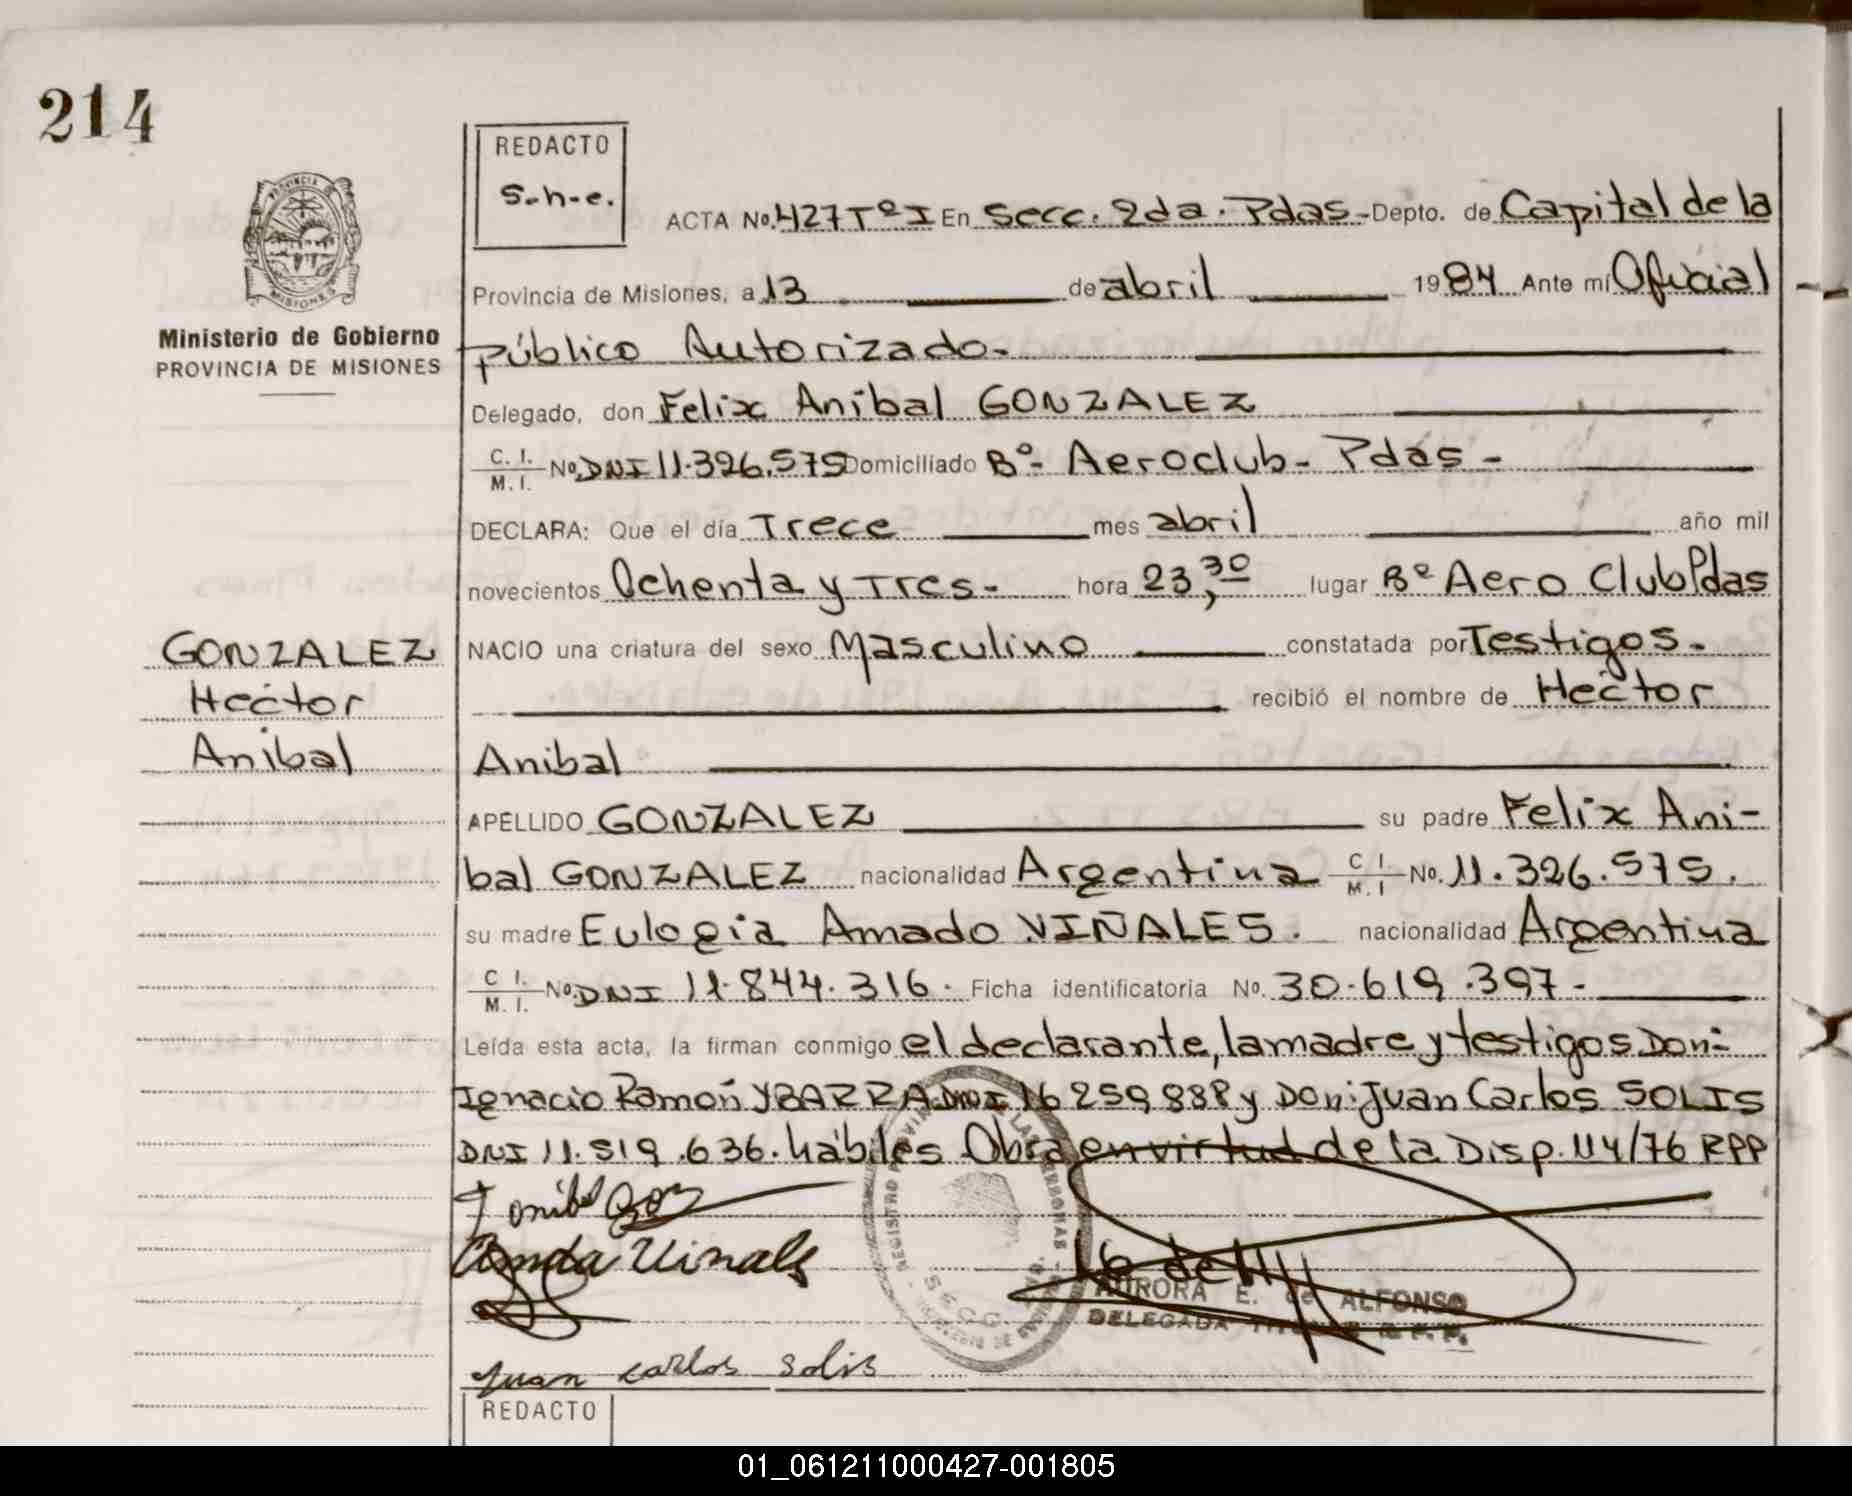 214
REDACTO
S.h.e.
PROVINCIA DE
MISIONES
Ministerio de Gobierno
PROVINCIA DE MISIONES
ACTA No. 427 Tº I En Secc. 2da. Pdas - Depto. de Capital de la
Provincia de Misiones, a 13 de abril 1984 Ante mí Oficial
público Autorizado.
Delegado, don Felix Anibal GONZALEZ
C. I. / M. I. No. DNI 11.326.575 Domiciliado Bº- Aeroclub - Pdas -
DECLARA: Que el día Trece mes abril año mil
novecientos Ochenta y Tres - hora 23,30 lugar Bº Aero Club Pdas
NACIO una criatura del sexo Masculino constatada por Testigos.
recibió el nombre de Hector
Anibal
GONZALEZ
Hector
Anibal
APELLIDO GONZALEZ su padre Felix Ani-
bal GONZALEZ nacionalidad Argentina C I. / M. I No. 11.326.575.
su madre Eulogia Amado VIÑALES. nacionalidad Argentina
C I. / M. I. No. DNI 11.844.316. Ficha identificatoria No. 30.619.397.
Leída esta acta, la firman conmigo el declarante, la madre y testigos Don:
Ignacio Ramón YBARRA DNI 16 259 888 y Don: Juan Carlos SOLIS
DNI 11.519.636. hábiles Obra en virtud de la Disp. 114/76 RPP
Amda Vinals
AURORA E. de ALFONSO
DELEGADA
SECC
Juan carlos Solis
REDACTO
01_061211000427-001805